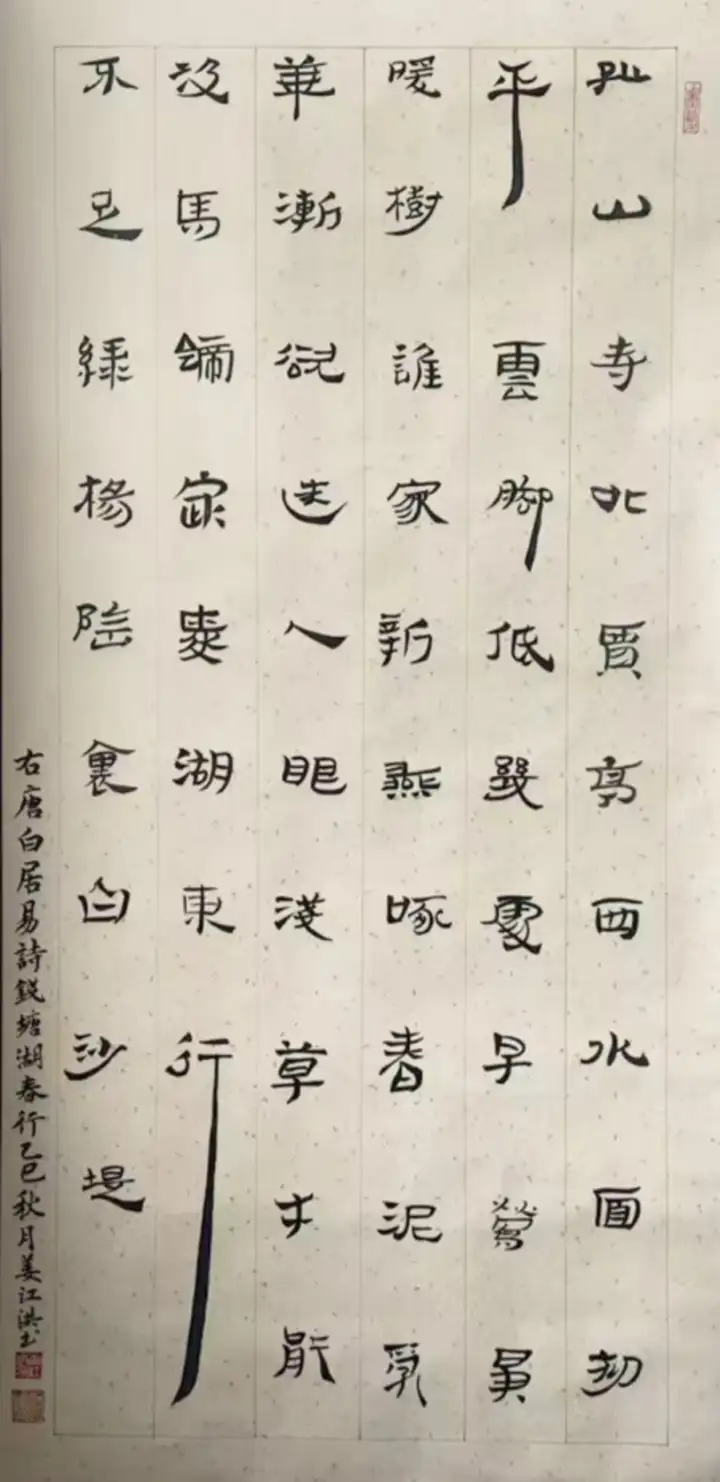 孤山寺北賈亭西水面初
平雲腳低幾處早鶯爭
暖樹誰家新燕啄春泥亂
華漸欲迷人眼淺草才能
沒馬蹄最愛湖東行
不足綠楊陰裏白沙堤
右唐白居易詩錢塘湖春行乙巳秋月姜江洪书